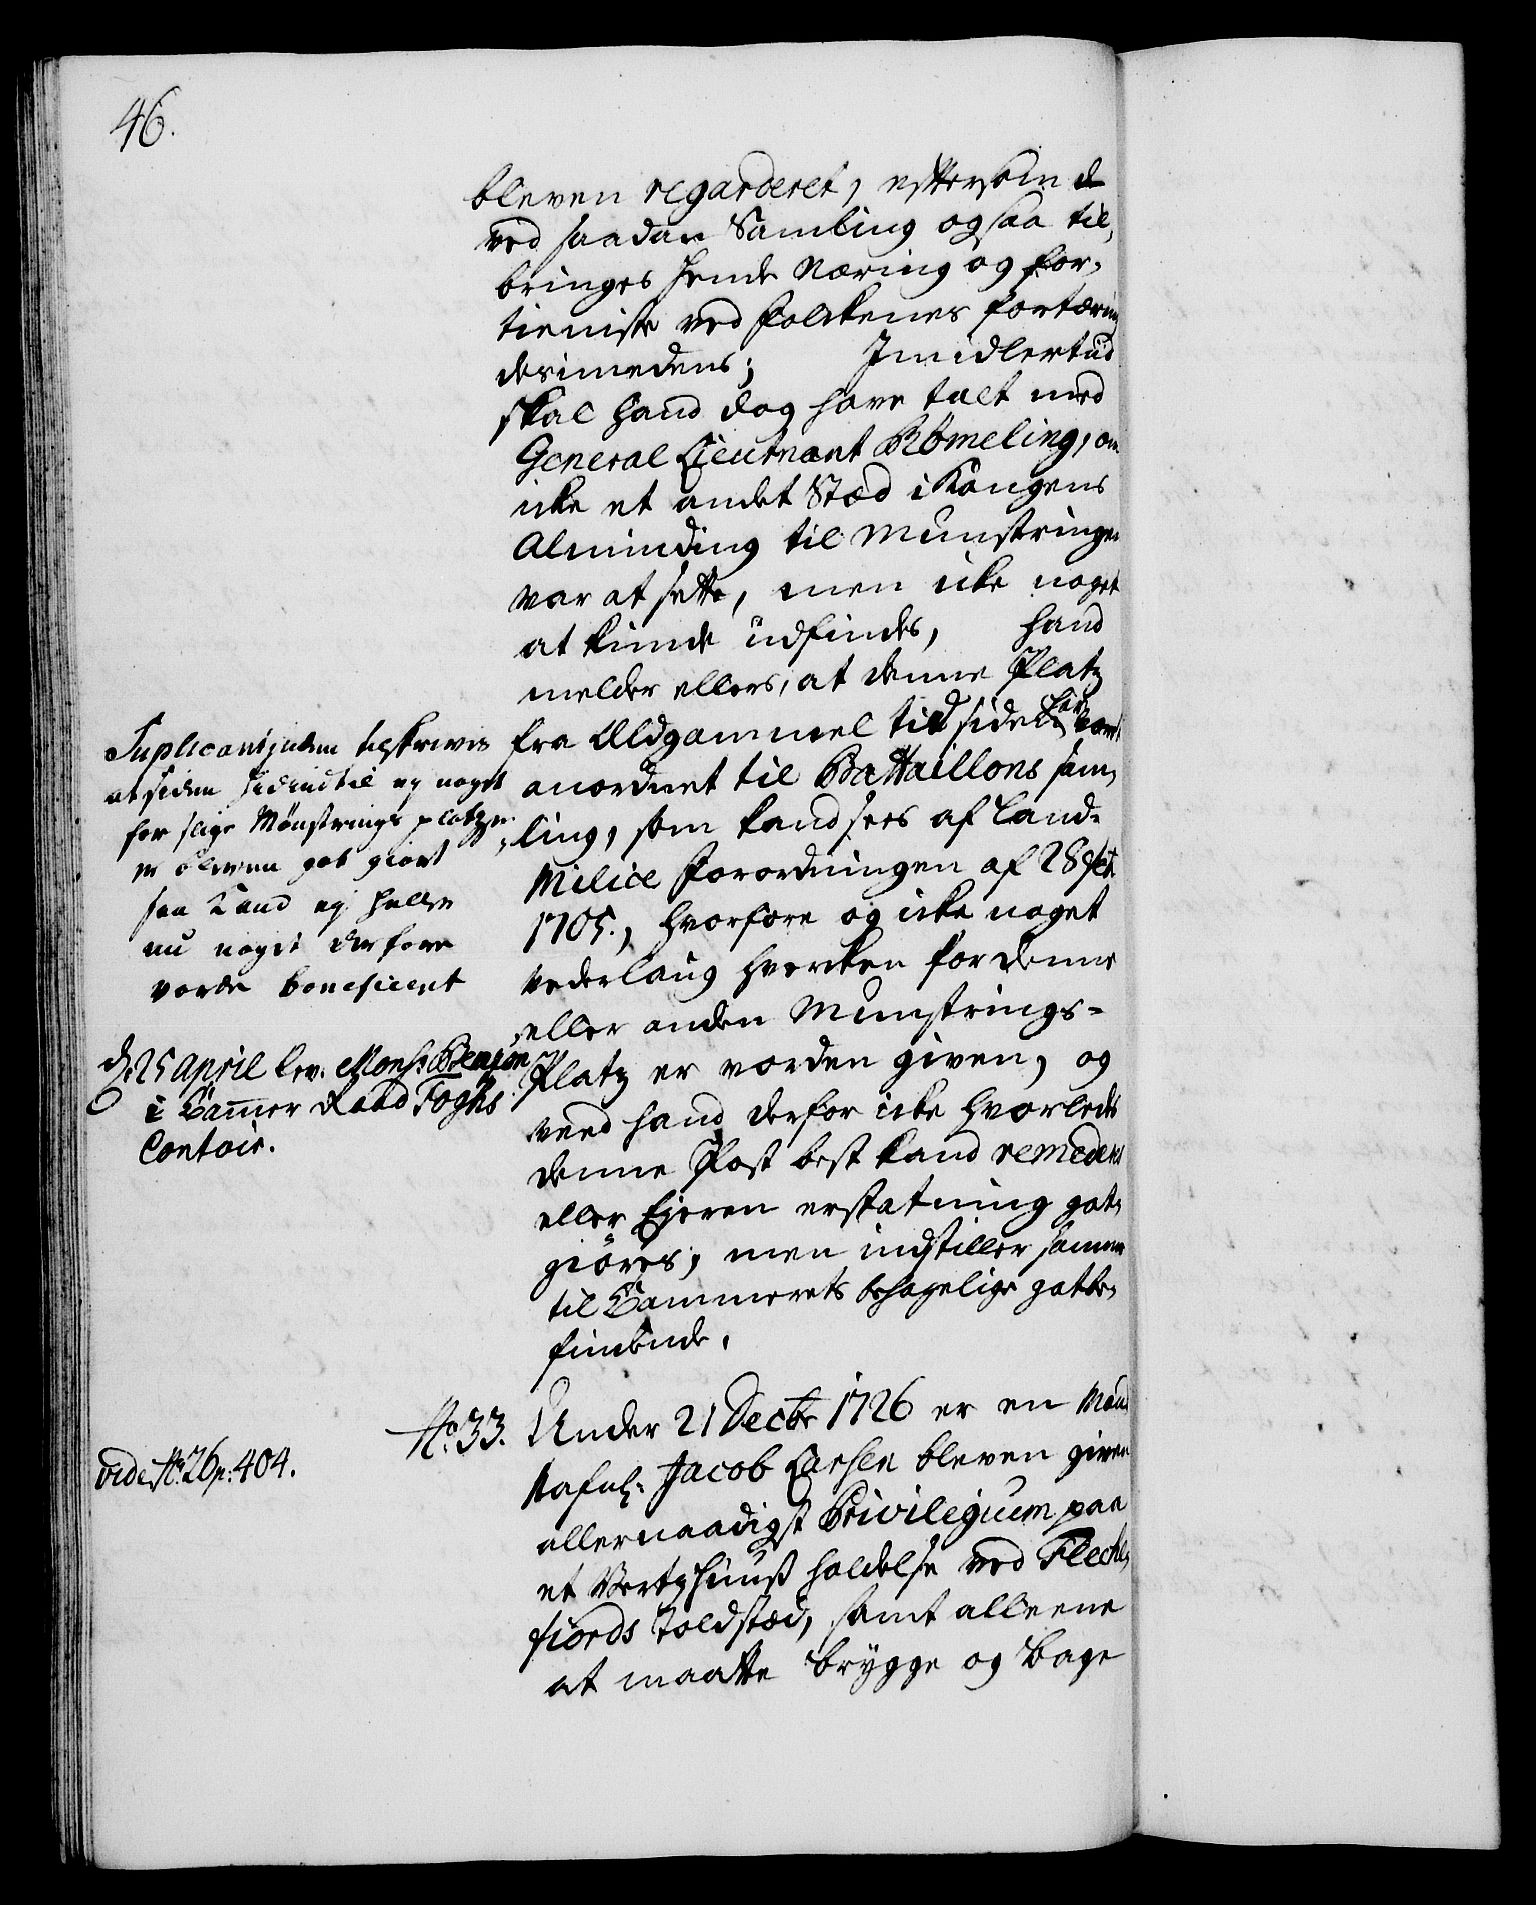 46.
bleven regarderet, eftersom d
ved saadan Samling ogsaa til,
bringes hende Næring og for,
tieniste ved folckenes fortæring
desimedens; Imidlertiid
skal hand dog have talt med
General Lieutnant Rømeling, om
icke et andet Stæd i Kongens
Alminding til Munstringen
var at sette, men icke noget
at kunde udfindes, hand
melder ellers, at denne Platz
fra Oldgammel tid siden har været
anordnet til Battaillons sam,
ling, som kand sees af Land-
Milice Forordningen af 28 febr
1705., hvorfore og icke noget
vederlaug hvercken for denne
eller anden Munstrings-
Platz er vorden given, og
veed hand derfor icke hvorledes
denne Post best kand remederes
eller Ejeren erstatning got,
giöres, men indstiller samme
til Cammerets behagelige gotbe,
findende.
Suplicantinden tilskrives
at siden hidindtil ey noget
for slige Mönstrings platze
er bleven got giort
saa kand ej heller
nu noget derfore
vorde beneficeret
d. 25 April lev. Monsr. Benzon
i Cammer Raad Foghs
Contoir.
No. 33. Under 21 Decbr 1726 er en Mand
Nafnl. Jacob Larsen bleven given
allernaadigst Privilegium paa
et Vertzhuuss holdelse ved Fleche,
fiords Toldstæd, samt alleene
at maatte brygge og bage
vide No. 26 p: 404.